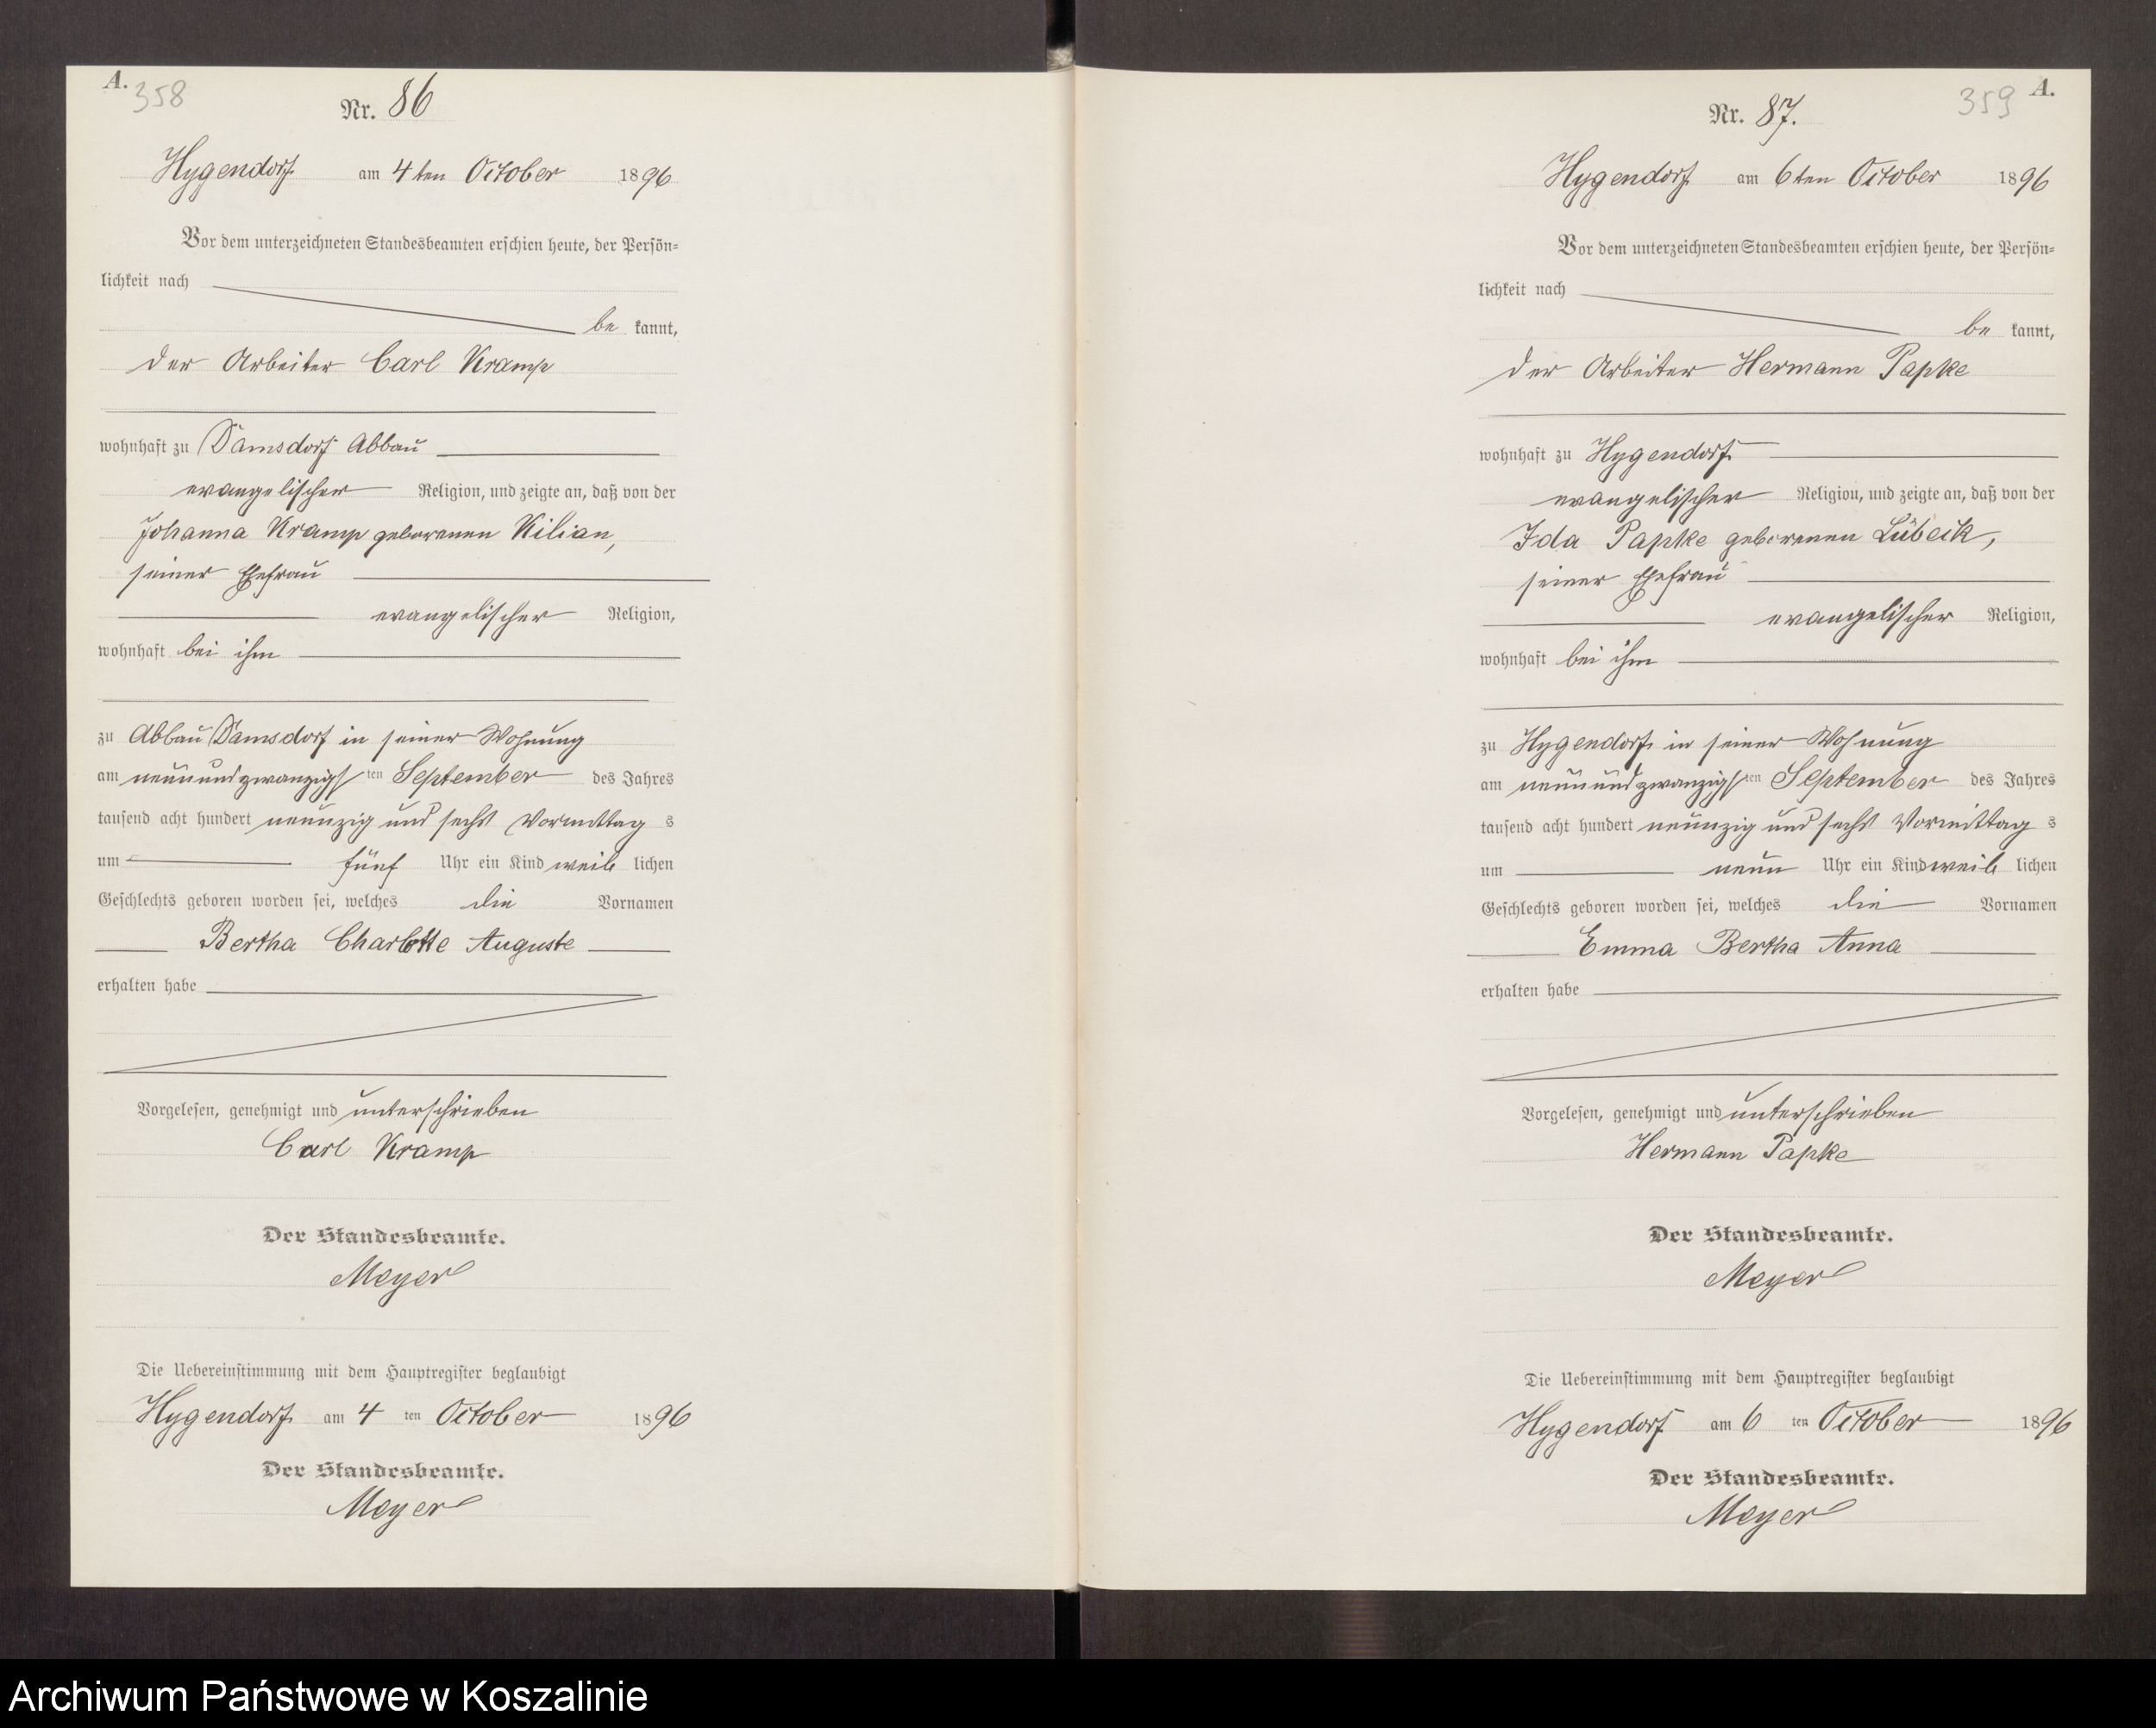 A.
358
Nr. 86
Hygendorf am 4ten October 1896
Vor dem unterzeichneten Standesbeamten erschien heute, der Persön=
lichkeit nach
be kannt,
der Arbeiter Carl Kramp
wohnhaft zu Damsdorf Abbau
evangelischer Religion, und zeigte an, daß von der
Johanna Kramp geborenen Kilian,
seiner Ehefrau
evangelischer Religion,
wohnhaft bei ihm
zu Abbau Damsdorf in seiner Wohnung
am neunundzwanzigsten September des Jahres
tausend acht hundert neunzig und sechs Vormittags
um fünf Uhr ein Kind weiblichen
Geschlechts geboren worden sei, welches die Vornamen
Bertha Charlotte Auguste
erhalten habe
Vorgelesen, genehmigt und unterschrieben
Carl Kramp
Der Standesbeamte.
Meyer
Die Uebereinstimmung mit dem Hauptregister beglaubigt
Hygendorf am 4 ten October 1896
Der Standesbeamte.
Meyer
359
A.
Nr. 87.
Hygendorf am 6ten October 1896
Vor dem unterzeichneten Standesbeamten erschien heute, der Persön=
lichkeit nach
be kannt,
der Arbeiter Hermann Papke
wohnhaft zu Hygendorf
evangelischer Religion, und zeigte an, daß von der
Ida Papke geborenen Lübeck,
seiner Ehefrau
evangelischer Religion,
wohnhaft bei ihm
zu Hygendorf in seiner Wohnung
am neunundzwanzigsten September des Jahres
tausend acht hundert neunzig und sechs Vormittags
um neun Uhr ein Kind weiblichen
Geschlechts geboren worden sei, welches die Vornamen
Emma Bertha Anna
erhalten habe
Vorgelesen, genehmigt und unterschrieben
Hermann Papke
Der Standesbeamte.
Meyer
Die Uebereinstimmung mit dem Hauptregister beglaubigt
Hygendorf am 6 ten October 1896
Der Standesbeamte.
Meyer
Archiwum Państwowe w Koszalinie